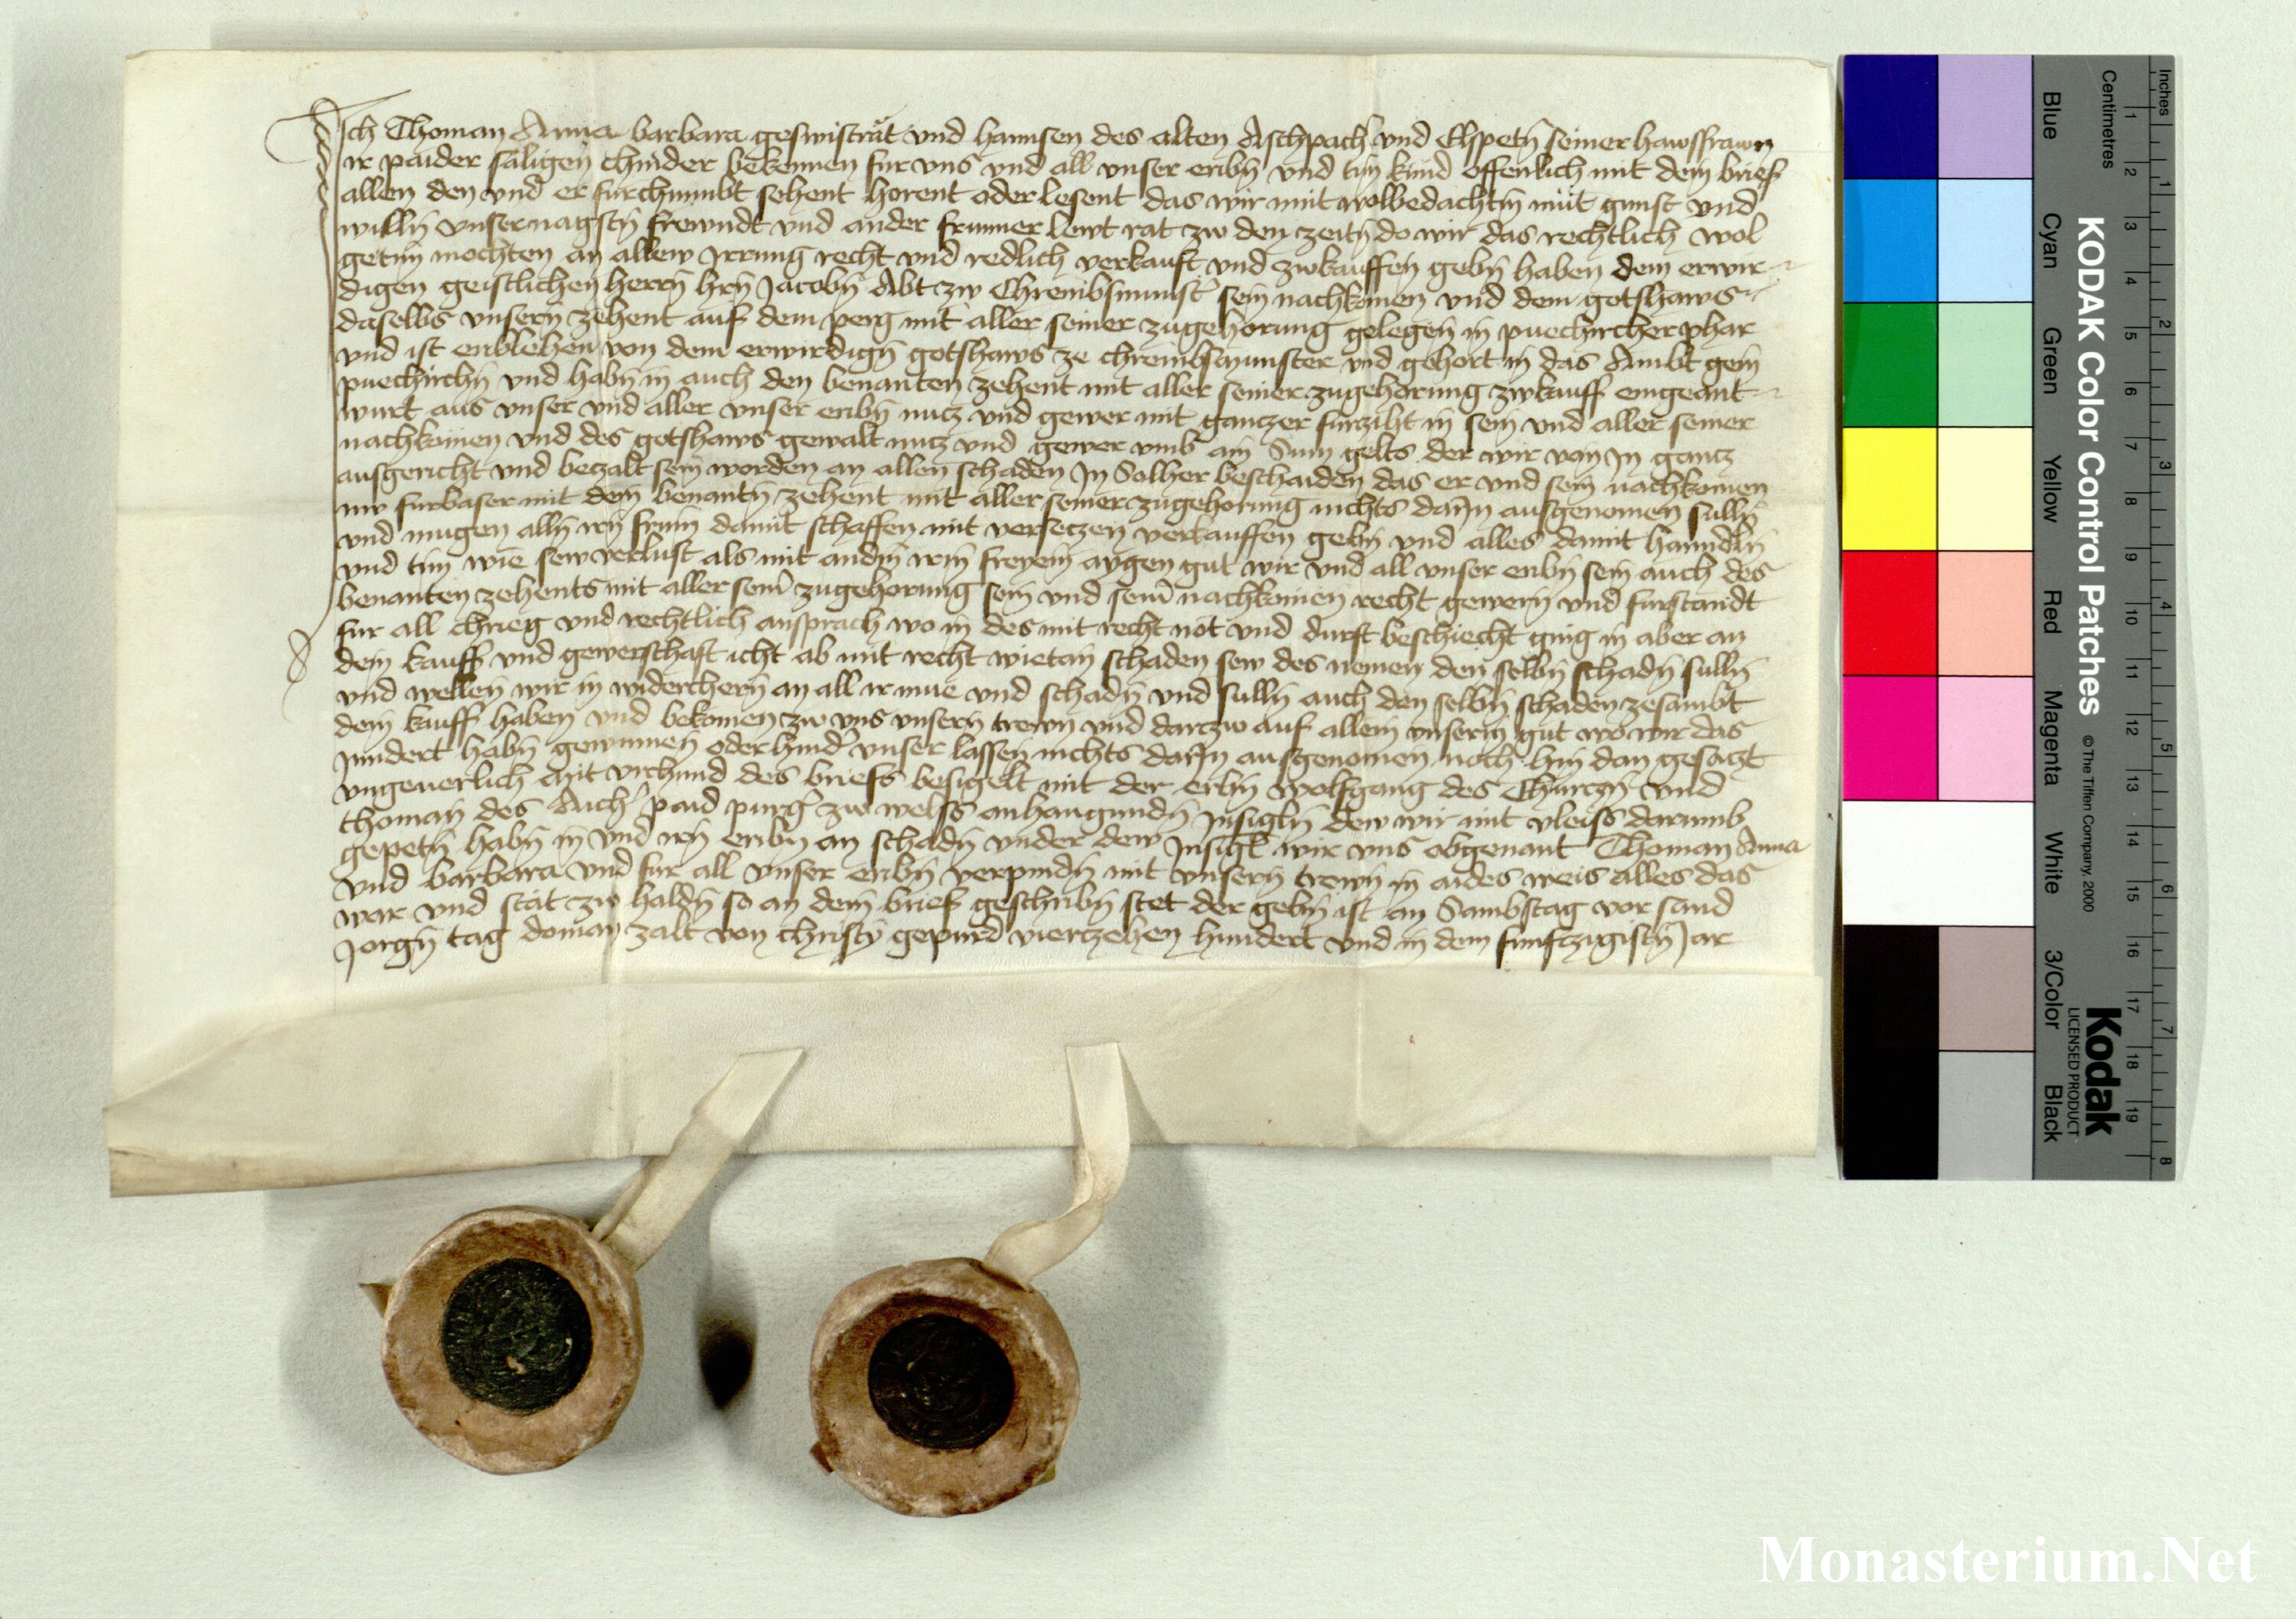 Ich Thoman Anna barbara geswistrat vnd hannsen des alten Aschpach' vnd Elspetn seiner hawsfrawn
ir paider saligen chinder bekennen fur vns vnd all vnser eribn vnd tun kund offenlich mit dem brief
allen den vnd er furchumbt sehent horent oder lesent das wir mit wolbedachtn mut gunst vnd
willn vnser nagstn frewndt vnd ander frumer lewt rat zw den zeitn do wir das rechtlich wol
getun mochten an allew Irrung recht vnd redlich verkauft vnd zwkauffen gebn haben dem erwir
digen geistlichen herrn hrn Jacobn Abt zw Chrembsmunst' sein nachkomen vnd dem gotshaws
daselbs vnsern zehent auf dem perg mit aller seiner zugehorung gelegen in puechircher phar
vnd ist eriblehen von dem erwirdign gotshaws ze chrembsmunster vnd gehort in das Ambt gein
puechirchn vnd habn in auch den benanten zehent mit aller seiner zugehorung zwkauff eingeant
wurt aus vnser vnd aller vnser eribn nutz vnd gewer mit gantzer furziht in sein vnd aller seiner
nachkomen vnd des gotshaws gewalt nutz vnd gewer vmb ain Sum gelts der wir von In gantz
ausgericht vnd betzalt sein worden an allen schaden In Solher beschaiden das er vnd sein nachkomen
nw furbaser mit dem benantn zehent mit aller seiner zugehorung nichts darIn ausgenomen sulln
vnd mugen alln irn frum damit schaffen mit versetzen verkauffen gebn vnd alles damit hanndln
vnd tun wie sew verlust als mit andn irm freyem aygen gut wir vnd all vnser eribn sein auch des
benanten zehents mit aller seinr zugehorung sein vnd seinr nachkomen recht gewern vnd furstandt
fur all chrieg vnd rechtlich ansprach wo in des mit recht not vnd durft beschiecht ging in aber an
dem kauff vnd gewerschaft icht ab mit recht wietan schaden sew des nemen den selbn schadn sulln
vnd wellen wir in widerchern an all ir mue vnd schadn vnd sulln auch den selbn schaden zesambt
dem kauff haben vnd bekomen zw vns vnsern trewn vnd dartzw auf allem vnserm gut wo wir das
Inndert habn gewinnen oder hind' vnser lassen nichts darIn ausgenomen noch hin dan gesatzt
vngeuerlich Mit vrchund des briefs besigelt mit der erbn Wolfgang des Churtzn vnd
thoman des Auch' paid purg' zw welss anhangundn Insigln dew wir mit vleiss darumb
gepetn habn in vnd irn eribn an schadn vnder dew Insigl wir vns obgenant Thoman Anna
vnd barbara vnd fur all vnser eribn verpindn mit vnsern trewn in aides weis alles das
war vnd stat zw haldn so an dem brief geschribn stet der gebn ist an Sambstag vor sand
Jorgn tag do man zalt von christi gepurd viertzehen hundert vnd in dem funftzigistn Jar
Inches
Centimetres
KODAK Color Control Patches © The Tiffen Company, 2000 Kodak
LICENSED PRODUCT
Blue Cyan Green Yellow Red Magenta White 3/Color Black
1 2 3 4 5 6 7 8 9 10 11 12 13 14 15 16 17 18 19
1 2 3 4 5 6 7 8
Monasterium.Net